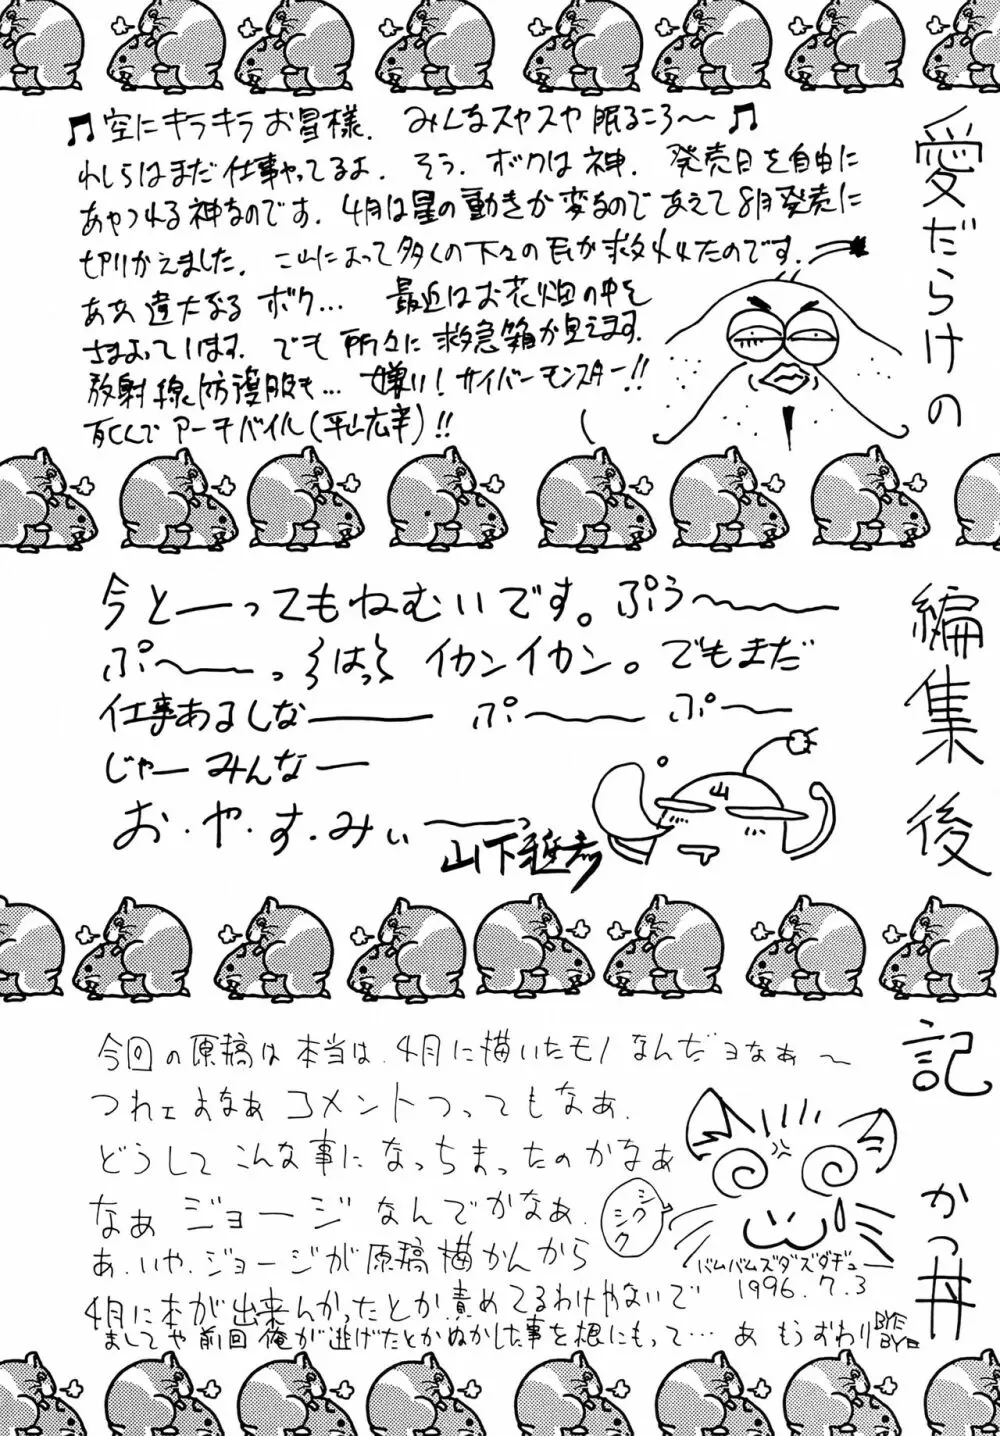 愛だらけの編集後記 かつ丼
♫空にキラキラお星様. みんなスヤスヤ眠るころ〜♫
わしらはまだ仕事やってるよ. そう. ボクは神. 発売日を自由に
あやつれる神なのです. 4月は星の動きが変なのであえて8月発売に
切りかえました. これによって多くの下々の民が救われたのです.
ああ 偉大なる ボク... 最近はお花畑の中を
さまよっています. でも 所々に 救急箱が見えます.
放射線防護服も... 嫌い! サイバーモンスター!!
死んで アーキバイル(平山広幸)!!
今とーってもねむいです。ぷぅ〜
ぷ〜っ はっ イカンイカン。でもまだ
仕事あるしなー ぷ〜 ぷ〜
じゃー みんなー
お・や・す・みぃーっ
山下
山
今回の原稿は本当は.4月に描いたモノなんだヨなぁ〜
つれェよなぁ コメントつってもなぁ.
どうして こんな事に なっちまったのかなぁ
なぁ ジョージ なんでかなぁ.
シクシク
あ.いや.ジョージが原稿描かんから
4月に本が出来んかったとか責めてるわけやないで
ましてや 前回 俺が逃げたとかぬかした事を根にもって… あ もうおわり BYE BYE
バムバムズダズダヂュー
1996.7.3